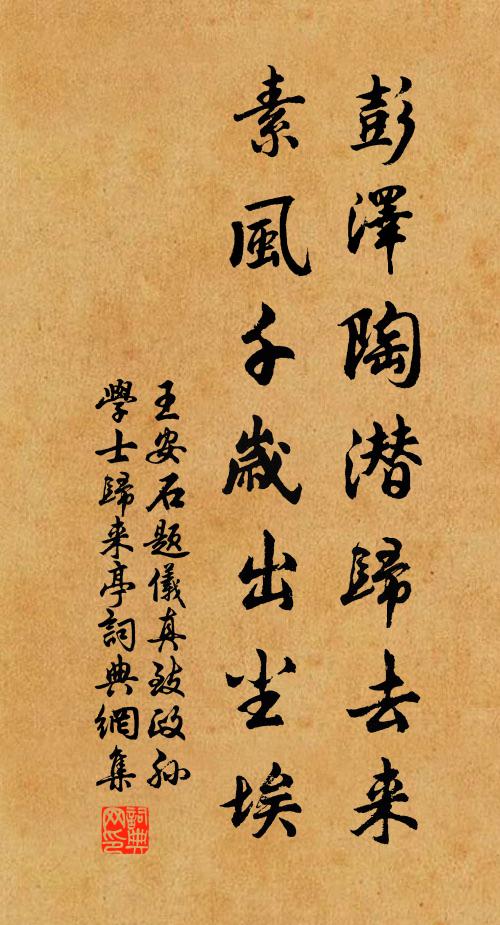 彭澤陶潜歸去来
素風千歲出尘埃
王安石題儀真致政孙
學士歸来亭詞典網集
詞典网印